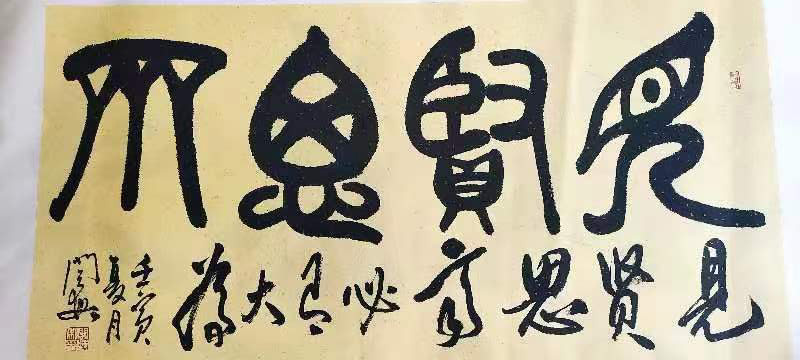 見賢思齊
見贤思齊必有大為
壬寅
夏月